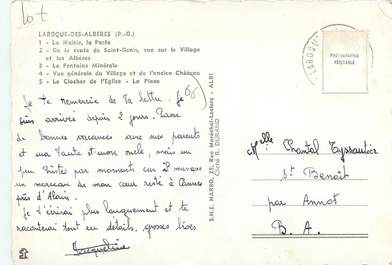 LAROQUE-DES-ALBÈRES (P.-O.)
1 - La Mairie, la Poste
2 - De la route de Saint-Genis, vue sur le Village
et les Albères
3 - La Fontaine Minérale
4 - Vue générale du Village et de l'ancien Château
5 - Le Clocher de l'Eglise - La Place
Je te remercie de ta lettre. Je
suis arrivée depuis 2 jours. Passe
de bonnes vacances avec mes parents
et ma tante et mon oncle, mais un
peu tristes par moments car il manque
un morceau de mon cœur resté à
près d'Alain.
Je t'écrirai plus longuement et te
raconterai tout en détails, grosses bises.
Jacqueline
S.H.E. MARBO, 23, Rue Maréchal-Leclerc - ALBI
Cliché R. DURAND
LAROQUE
PHOTOGRAPHIE
VERITABLE
Melle Chantal
St Benoît
par Annot
B. A.